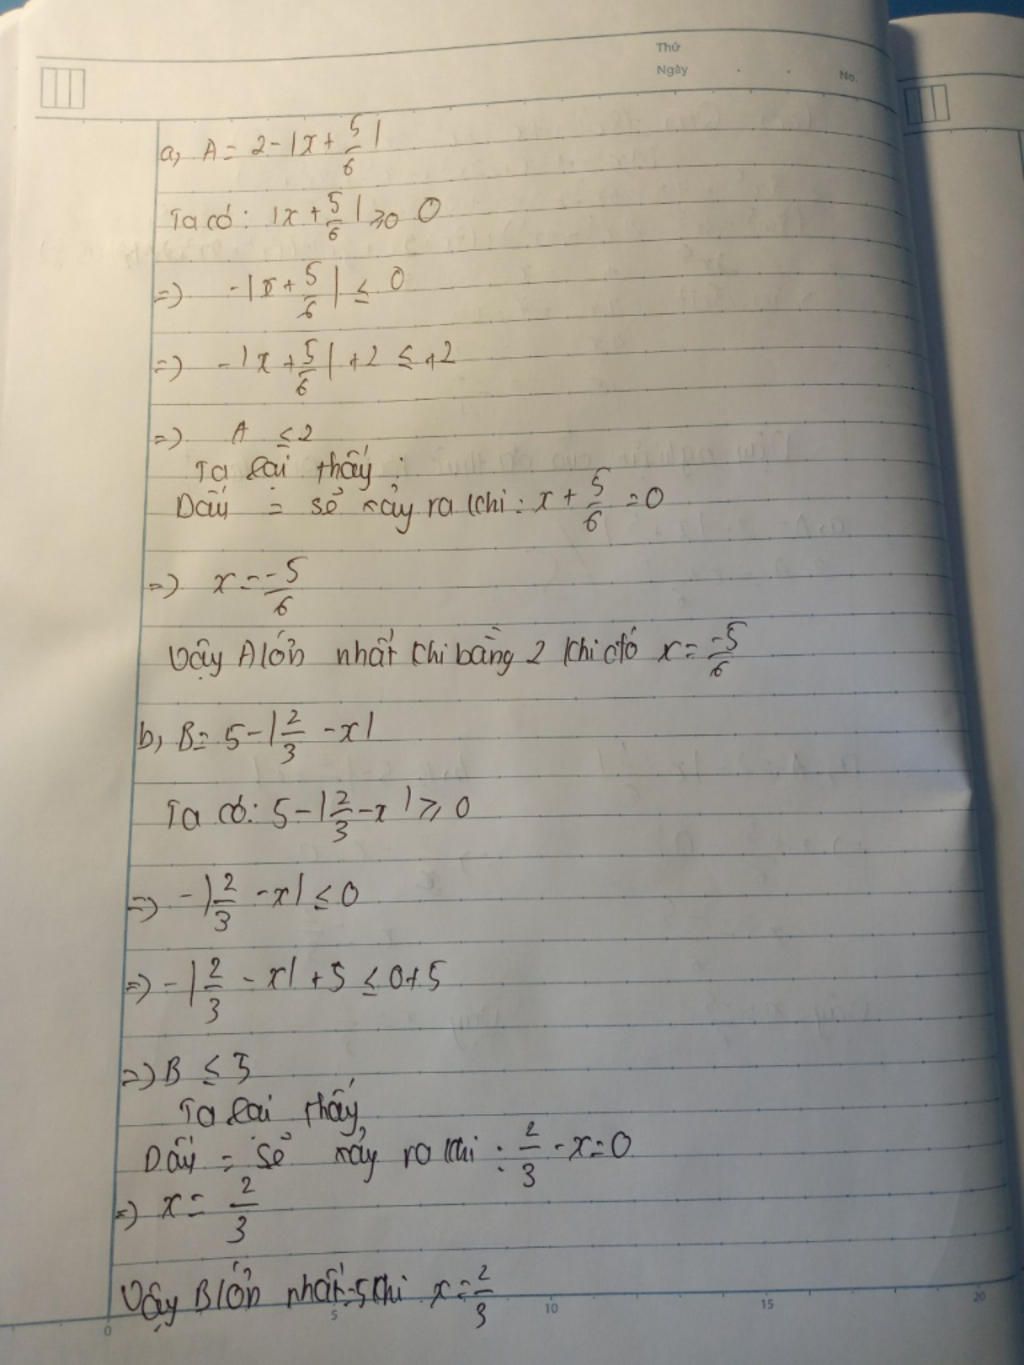 Thứ
Ngày . . No.
a, A = 2 - |x + 5/6|
Ta có: |x + 5/6| ≥ 0
=) -|x + 5/6| ≤ 0
=) -|x + 5/6| + 2 ≤ +2
=) A ≤ 2
Ta lại thấy :
Dấu = sẻ xảy ra khi: x + 5/6 = 0
=) x = -5/6
Vậy A lớn nhất khi bằng 2 khi đó x = -5/6
b, B = 5 - |2/3 - x|
Ta có: 5 - |2/3 - x| ≥ 0
=) -|2/3 - x| ≤ 0
=) -|2/3 - x| + 5 ≤ 0 + 5
=) B ≤ 5
Ta lại thấy
Dấu = sẻ xảy ra khi : 2/3 - x = 0
=) x = 2/3
Vậy B lớn nhất = 5 khi x = 2/3
0 5 10 15 20